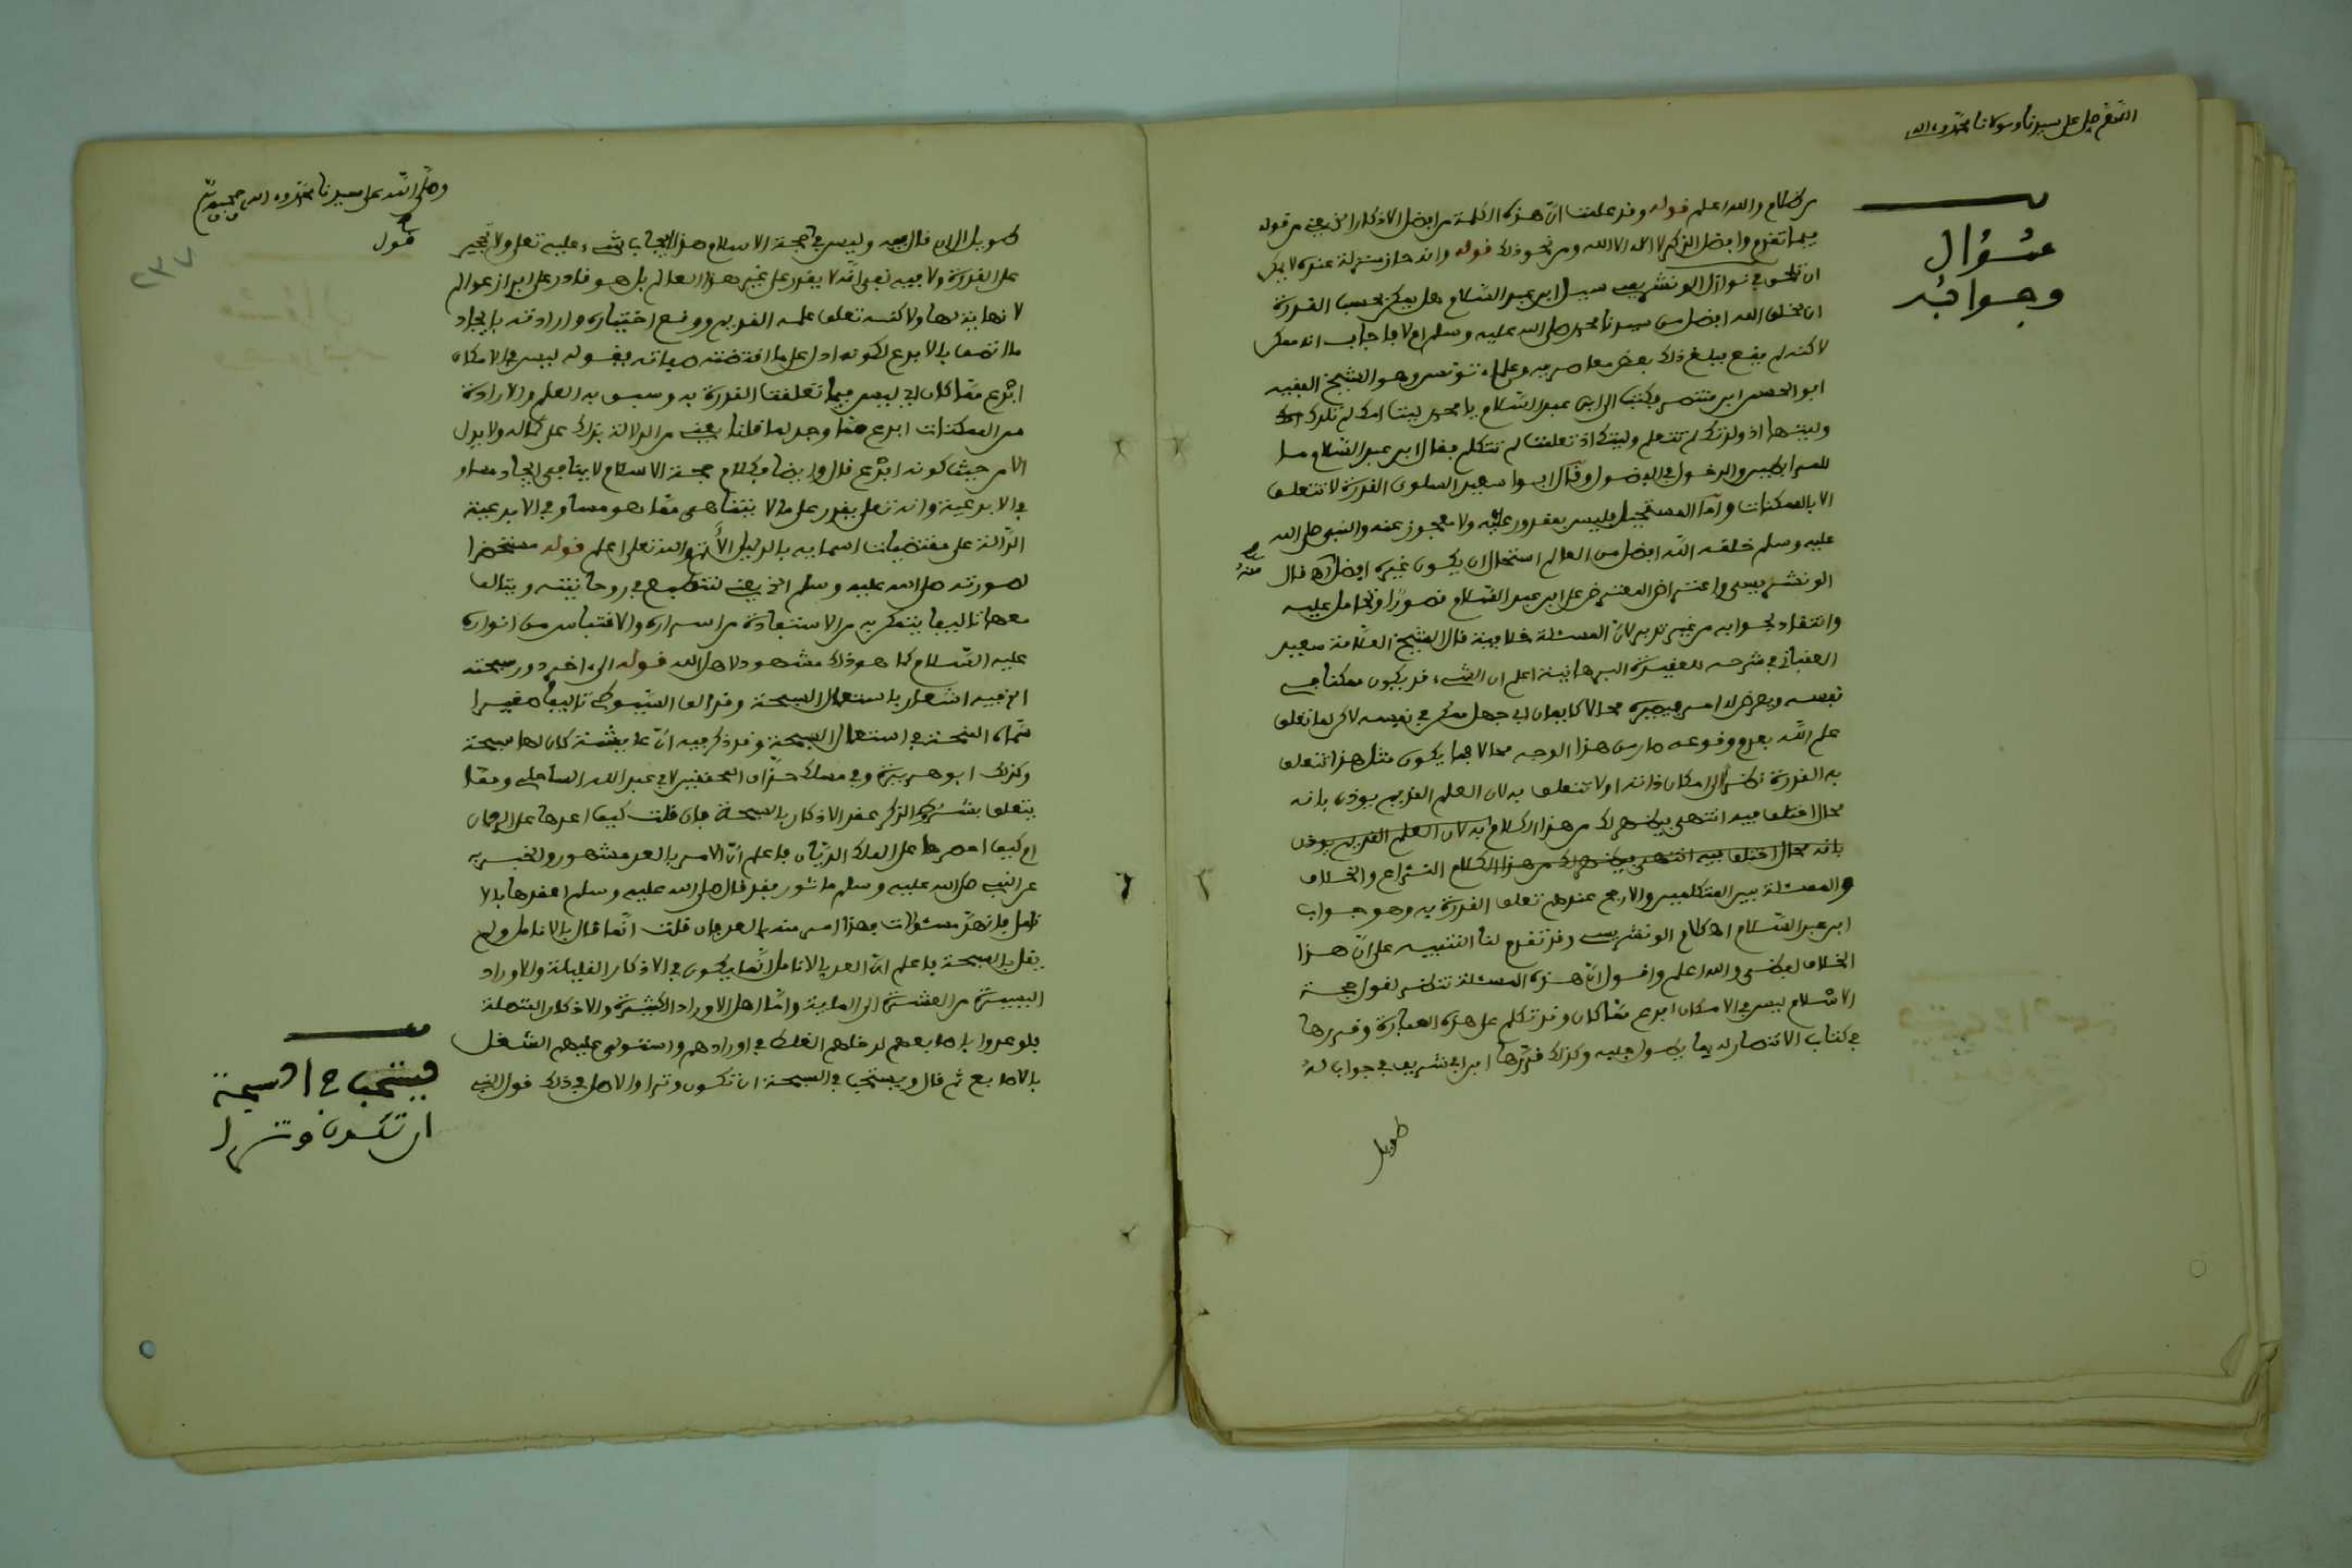 اللهم صل على سيدنا ومولانا محمد وءاله
سؤال
وجوابه
والله اعلم قوله وقد علمت ان هذه الكلمة من افضل الاذكار الخ يعني من قوله
فيما تقدم وافضل الذكر لا اله الا الله ومن نحو ذلك قوله وانه حاز منزلة عنده لا يمكن
ان تلحق في نوازل الونشريسي سيل ابن عبد السلام هل يمكن بحسب القدرة
ان يخلق الله افضل من سيدنا محمد صلى الله عليه وسلم ام لا فاجاب انه ممكن
لاكنه لم يقع فبلغ ذلك بعض معاصريه من علماء تونس وهو الشيخ الفقيه
ابو الحسن ابن منتصر فكتب الى ابن عبد السلام يا محمد ليت امك لم تلدك
وليتها اذ ولدتك لم تتعلم وليتك اذ تعلمت لم تتكلم فقال ابن عبد السلام ما
للمرابطين والدخول في الفضول وقال ابوا سعيد السلوي القدرة لا تتعلق
الا بالممكنات واما المستحيل فليس بمقدور عليه ولا معجوز عنه والنبي صلى الله
عليه وسلم خلقه الله افضل من العالم استحال ان يكون غيره افضل منه قال
الونشريسي واعتراض المعترض على ابن عبد السلام قصورا وتحامل عليه
وانتقاد لجوابه من غير تدبر لان المسئلة خلافية قال الشيخ العلامة سعيد
العقباني في شرحه للعقيدة البرهانية اعلم ان الشيء قد يكون ممكنا في
نفسه ويعرض له امر فيصيره محالا كايمان ابي جهل ممكن في نفسه لاكن لما تعلق
علم الله بعدم وقوعه صار من هذا الوجه محالا فما يكون مثل هذا تتعلق
به القدرة نظرا الى امكان ذاته اولا تتعلق به لان العلم القديم يوذن بانه
محال اختلف فيه انتهى فيظهر لك من هذا الكلام به لان العلم القديم يوذن
بانه محال اختلف فيه انتهى فيظهر لك من هذا الكلام النزاع والخلاف
في المسئلة بين المتكلمين والارجح عندهم تعلق القدرة به وهو جواب
ابن عبد السلام اه كلام الونشريسي وقد تقدم لنا التنبيه على ان هذا
الخلاف لفظي والله اعلم واقول ان هذه المسئلة تنظر لقول حجة
الاسلام ليس في الامكان ابدع مما كان وقد تكلم على هذه العبارة وقررها
في كتاب الانتصار له بما يطول جلبه وكذلك قررها ابن ابي شريف في جواب له
طويل
وصلى الله على سيدنا محمد وءاله وصحبه وسلم
٢٣٧
طويل الى ان قال فيه وليس في حجة الاسلام هذا ايجاب شيء عليه تعلى ولا تحجير
على القدرة ولا فيه نفي انه لا يقدر على غير هذا العالم بل هو قادر على ابراز عوالم
لا نهاية لها ولاكنه تعلق علمه القديم ووقع اختياره وارادته بايجاد
ما اتصف بالابدع لكونه ادل على ما اقتضته صفاته فقوله ليس في الامكان
ابدع مما كان اي ليس فيما تعلقت القدرة به وسبق به العلم والارادة
من الممكنات ابدع مما وجد لما قلنا يعني من الدلالة بذلك على كماله ولا يدل
الا من حيث كونه ابدع قال وايضا فكلام حجة الاسلام لا ينافي ايجاد مساو
في الابدعية وانه تعلى يقدر على ما لا يتناهى مما هو مساو في الابدعية
الدالة على مقتضيات اسمايه بالدليل الاتم والله تعلى اعلم قوله مستحضرا
لصورته صلى الله عليه وسلم الخ يعني لتنطبع في روحانيته ويتالف
معها تاليفا يتمكن به من الاستفادة من اسراره والاقتباس من انواره
عليه السلام كما هو ذلك مشهود لاهل الله قوله الى اخر دور سبحته
الخ فيه اشعار باستعمال السبحة وقد الف السيوطي تاليفا صغيرا
سماه المنحة في استعمال السبحة وقد ذكر فيه ان عايشة كان لها سبحة
وكذلك ابو هريرة وفي مسلك حذاق المحققين لابي عبد الله الساحلي ومما
يتعلق بشروط الذكر عقد الاذكار بالسبحة فان قلت كيف اعدها على الرحمان
ام كيف احصرها على الملك الديان فاعلم ان الامر بالعد مشهور والخبر به
عن النبي صلى الله عليه وسلم ماثور فقد قال صلى الله عليه وسلم اعقدها بالا
نامل فانهن مسئولات فهذا امر منه بالعد فان قلت انما قال بالانامل ولم
يقل بالسبحة فاعلم ان العد بالانامل انما يكون في الاذكار القليلة والاوراد
اليسيرة من العشرة الى الماية واما اهل الاوراد الكثيرة والاذكار المتصلة
فلو عدوا باصابعهم لدخلهم الغلط في اورادهم واستولى عليهم الشغل
بالاصابع ثم قال ويستحب في السبحة ان تكون وترا والاصل في ذلك قول النبي
يستحب في السبحة
ان تكون وترا